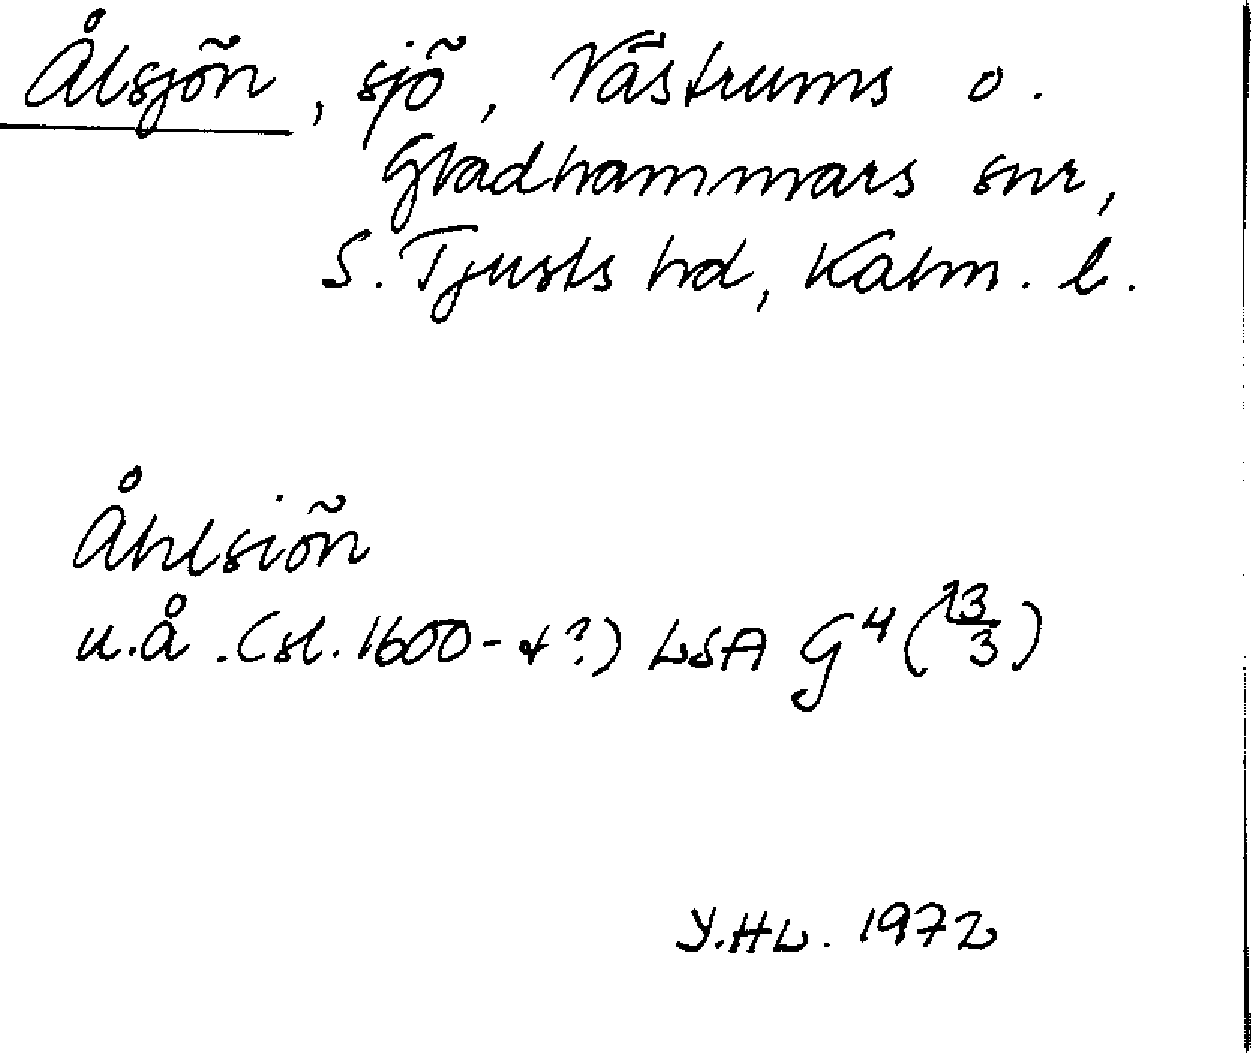 Ålsjön, sjö, Västrums o.
Gladhammars snr,
S. Tjusts hd, Kalm. l.
Åhlsiön
u.å. (sl. 1600-t?) LSA G4 (13/3)
Y.HL. 1972